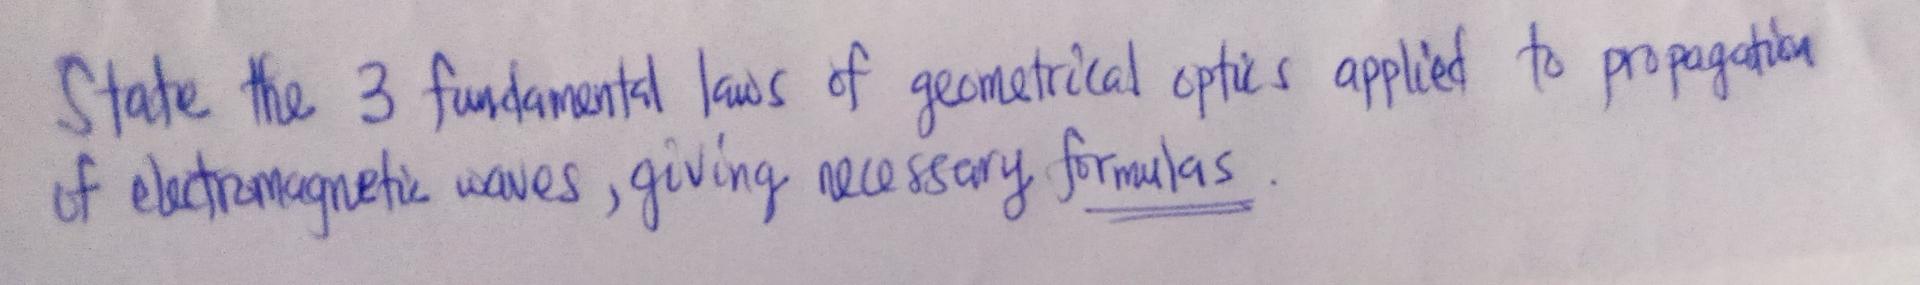 State the 3 fundamental laws of geometrical optics applied to propagation
of electromagnetic waves, giving necessary formulas.